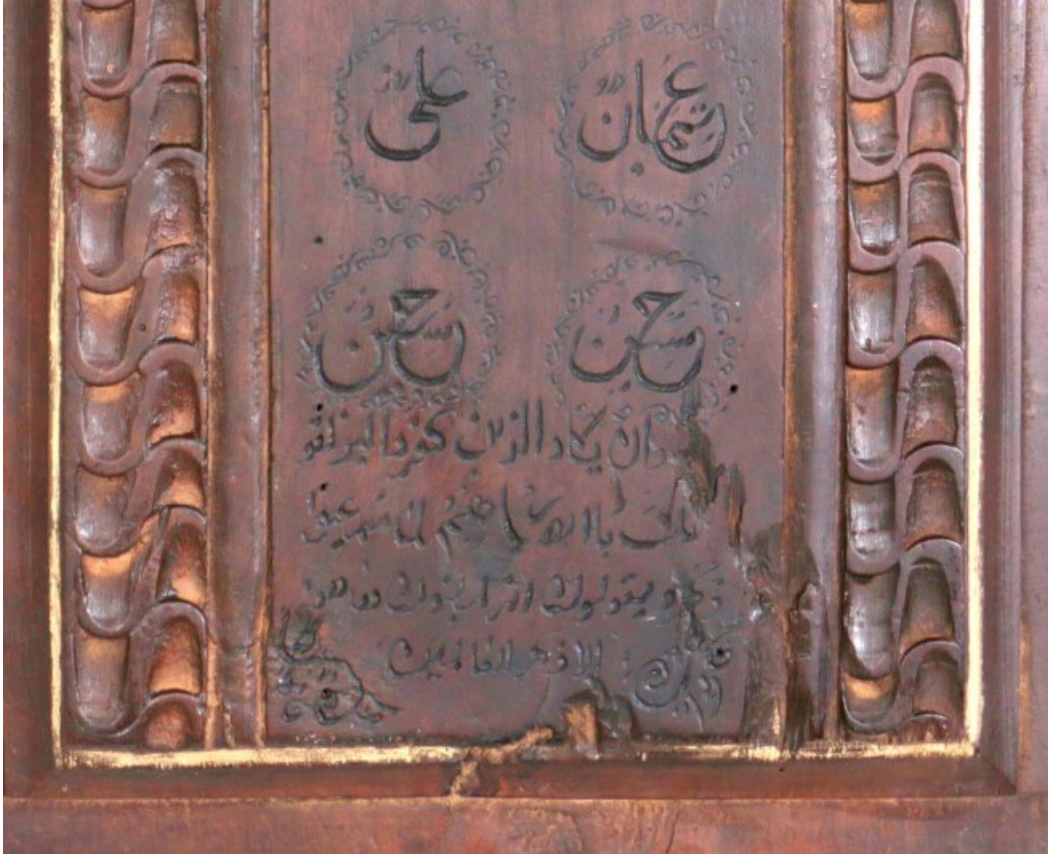 عثمان علي
حسن حسين
وان يكاد الذين كفروا ليزلقو
نك بابصارهم لما سمعوا
ويقولون انه لمجنون وما هو
الا ذكر للعالمين